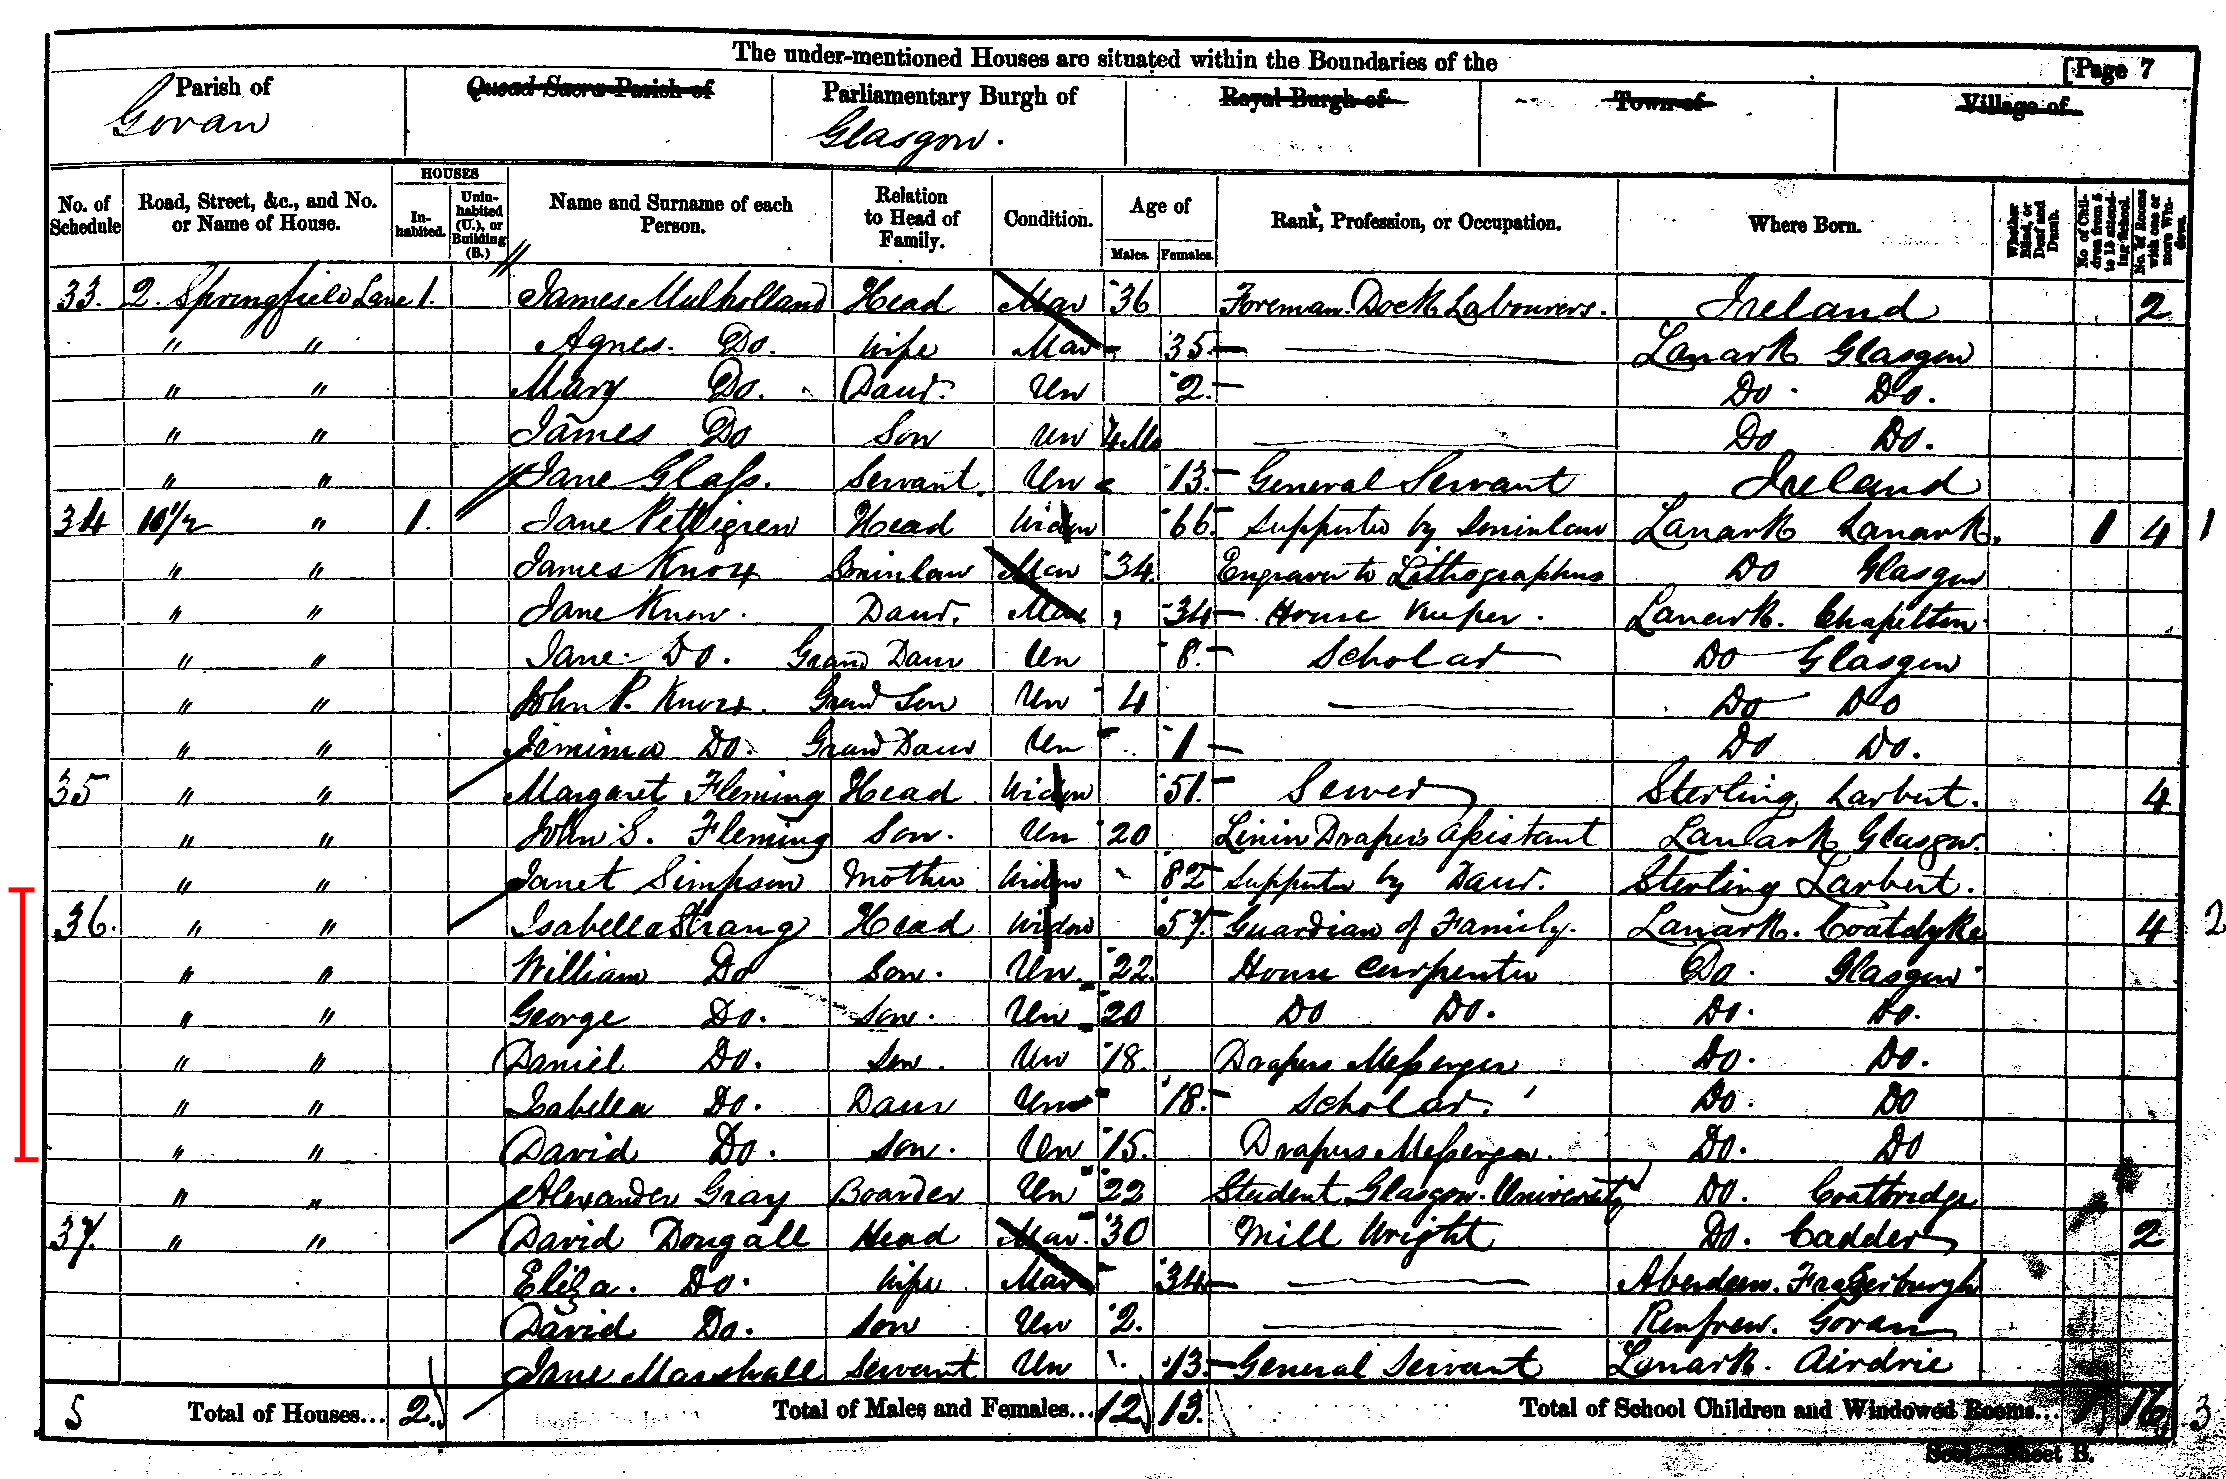 The under-mentioned Houses are situated within the Boundaries of the [Page 7
Parish of Govan Quoad Sacra Parish of Parliamentary Burgh of Glasgow. Royal Burgh of Town of Village of
No. of Schedule Road, Street, &c., and No. or Name of House. HOUSES In-habited. Unin-habited (U.), or Building (B.) Name and Surname of each Person. Relation to Head of Family. Condition. Age of Males. Females. Rank, Profession, or Occupation. Where Born. Whether Blind, or Deaf and Dumb. No of Chil-dren from 5 to 15 attend-ing School. No. of Rooms with one or more Win-dows.
33. 2 Springfield Lane 1. James Mulholland Head Mar 36 Foreman Dock Labourers. Ireland 2
" " Agnes. Do. Wife Mar 35 Lanark Glasgow
" " Mary Do. Daur. Un 2 Do. Do.
" " James Do Son Un 4 Mo Do Do.
" " Jane Glass. Servant. Un 13 General Servant Ireland
34 10½ " 1. Jane Pettigrew Head Widow 66 Supported by Soninlaw Lanark Lanark. 1 4 1
" " James Knox Soninlaw Mar 34 Engraver to Lithographers Do Glasgow
" " Jane Knox. Daur. Mar 34 House Keeper. Lanark. Chapelton
" " Jane Do. Grand Daur Un 8 Scholar Do Glasgow
" " John P. Knox. Grand Son Un 4 Do Do
" " Jemima Do. Grand Daur Un 1 Do Do.
35 " " Margaret Fleming Head Widow 51 Sewer Sterling Larbert. 4
" " John S. Fleming Son. Un 20 Linin Drapers Assistant Lanark Glasgow.
" " Janet Simpson Mother Widow 82 Supported by Daur. Sterling Larbert.
36. " " Isabella Strang Head Widow 57. Guardian of Family. Lanark. Coatdyke 4 2
" " William Do Son. Un. 22. House Carpenter Do. Glasgow
" " George Do. Son. Un 20 Do Do. Do. Do.
" " Daniel Do. Son. Un 18. Drapers Messenger Do. Do.
" " Isabella Do. Daur Un 18. Scholar. Do. Do
" " David Do. Son. Un 15. Drapers Messenger. Do. Do
" " Alexander Gray Boarder Un 22 Student Glasgow University Do. Coatbridge
37. " " David Dougall Head Mar. 30 Mill Wright Do. Cadder 2
Eliza. Do. Wife Mar 34 Aberdeen. Fraserburgh
David Do. Son Un 2. Renfrew. Govan
Jane Marshall Servant Un 13 General Servant Lanark. Airdrie
5 Total of Houses... 2 Total of Males and Females... 12 13. Total of School Children and Windowed Rooms... 1 16 3
Sheet B.